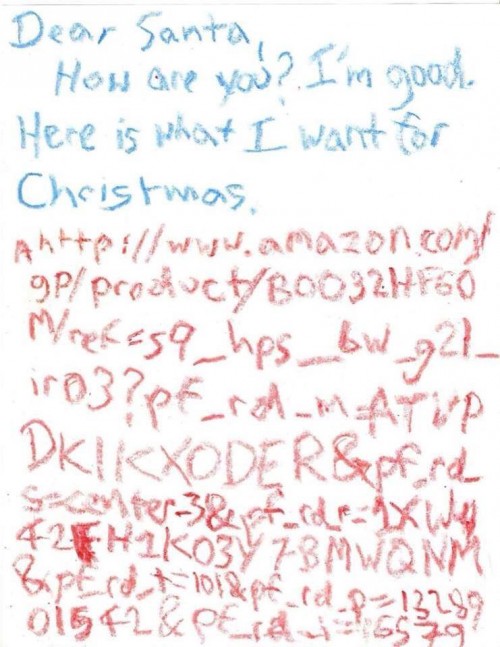 Dear Santa,
How are you? I'm good.
Here is what I want for
Christmas.
A http://www.amazon.com/
gp/product/B0032HF60
M/ref=s9_hps_bw_g21_
ir03?pf_rd_m=ATVP
DKIKX0DER&pf_rd_
s=center-3&pf_rd_r=1XWy
42FH1KO3Y7BMWQNM
&pf_rd_t=101&pf_rd_p=13289
01542&pf_rd_i=16579